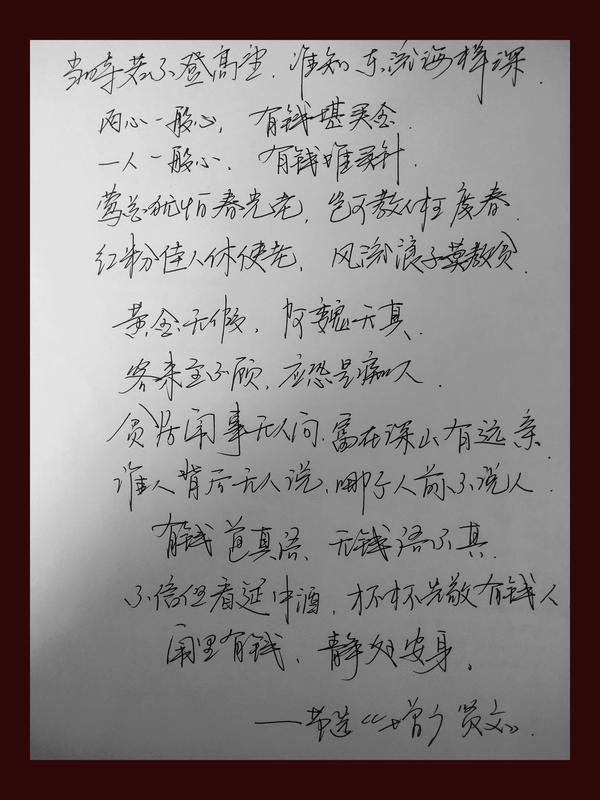 当时若不登高望，谁知东流海样深．
两心一般心，有钱堪买金．
一人一般心．有钱难买针．
莺花犹怕春光老，岂可教人枉度春．
红粉佳人休使老，风流浪子莫教贫．
黄金无假，阿魏无真．
客来主不顾，应恐是痴人．
贫居闹事无人问．富在深山有远亲．
谁人背后无人说，哪个人前不说人．
有钱道真语、无钱语不真．
不信但看筵中酒，杯杯先敬有钱人
闹里有钱、静处安身。
——节选《增广贤文》．